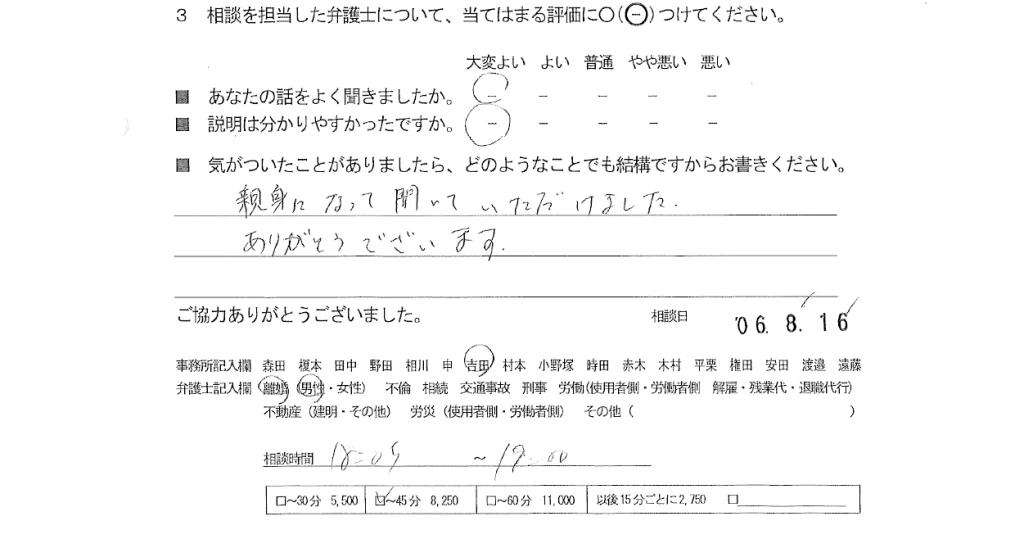 3 相談を担当した弁護士について、当てはまる評価に○(㊀)つけてください。
大変よい よい 普通 やや悪い 悪い
■ あなたの話をよく聞きましたか。 − − − − −
■ 説明は分かりやすかったですか。 − − − − −
■ 気がついたことがありましたら、どのようなことでも結構ですからお書きください。
親身になって聞いていただけました.
ありがとうございます.
ご協力ありがとうございました。 相談日 '06. 8. 16
事務所記入欄 森田 榎本 田中 野田 相川 申 吉田 村本 小野塚 時田 赤木 木村 平栗 権田 安田 渡邉 遠藤
弁護士記入欄 離婚 (男性・女性) 不倫 相続 交通事故 刑事 労働(使用者側・労働者側 解雇・残業代・退職代行)
不動産 (建明・その他) 労災 (使用者側・労働者側) その他 ( )
相談時間 18:05 ~ 19:00
□~30分 5,500 ☑~45分 8,250 □~60分 11,000 以後15分ごとに2,750 □